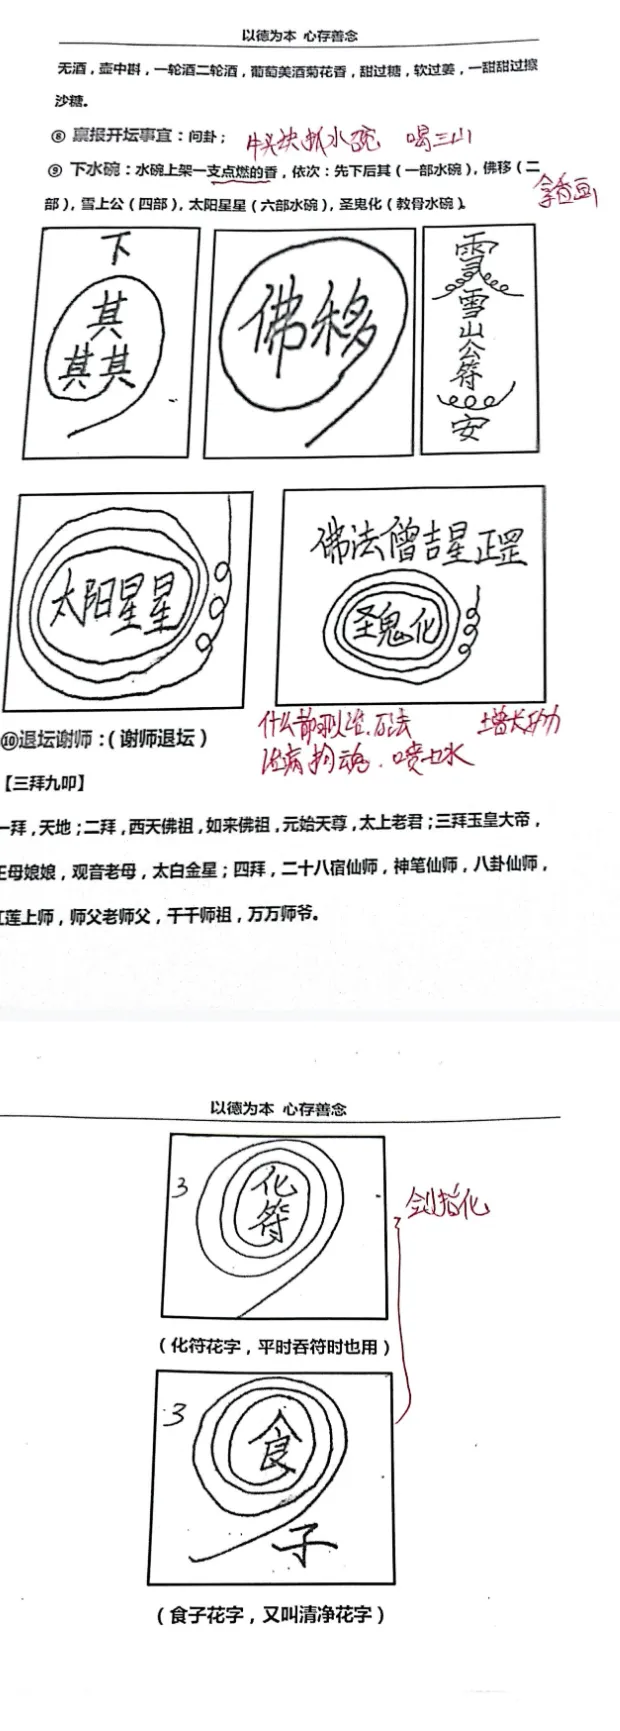 以德为本 心存善念
无酒，壶中斟，一轮酒二轮酒，葡萄美酒菊花香，甜过糖，软过姜，一甜甜过擦
沙糖。
⑧ 禀报开坛事宜：问卦；
水碗 喝三山
⑨ 下水碗：水碗上架一支点燃的香，依次：先下后其（一部水碗），佛移（二
拿香画
部），雪上公（四部），太阳星星（六部水碗），圣鬼化（教骨水碗）。
下
其
其其
佛移
雪
雪山公符
安
太阳星星
佛法僧吉星正罡
圣鬼化
什么都可以准.万法 增长功力
治病拘魂.喷七水
⑩退坛谢师：（谢师退坛）
【三拜九叩】
一拜，天地；二拜，西天佛祖，如来佛祖，元始天尊，太上老君；三拜玉皇大帝，
王母娘娘，观音老母，太白金星；四拜，二十八宿仙师，神笔仙师，八卦仙师，
红莲上师，师父老师父，千千师祖，万万师爷。
以德为本 心存善念
3
化符
剑指化
（化符花字，平时吞符时也用）
3
食
子
（食子花字，又叫清净花字）